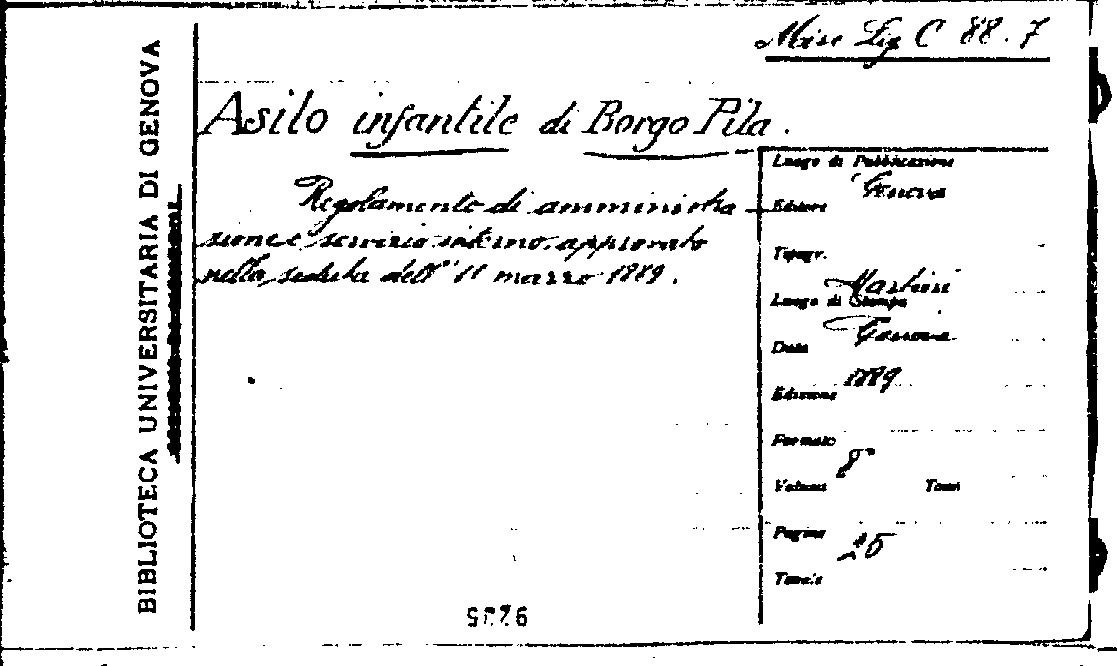 Misc Lig C 88.7
BIBLIOTECA UNIVERSITARIA DI GENOVA
Asilo infantile di Borgo Pila.
Regolamento di amministra-
zione e servizio interno approvato
nella seduta dell' 11 marzo 1889.
Luogo di Pubblicazione
Genova
Editore
Tipogr.
Martini
Luogo di Stampa
Genova
Data
1889
Edizione
Formato
8°
Volume Tomi
Pagine
Tavole